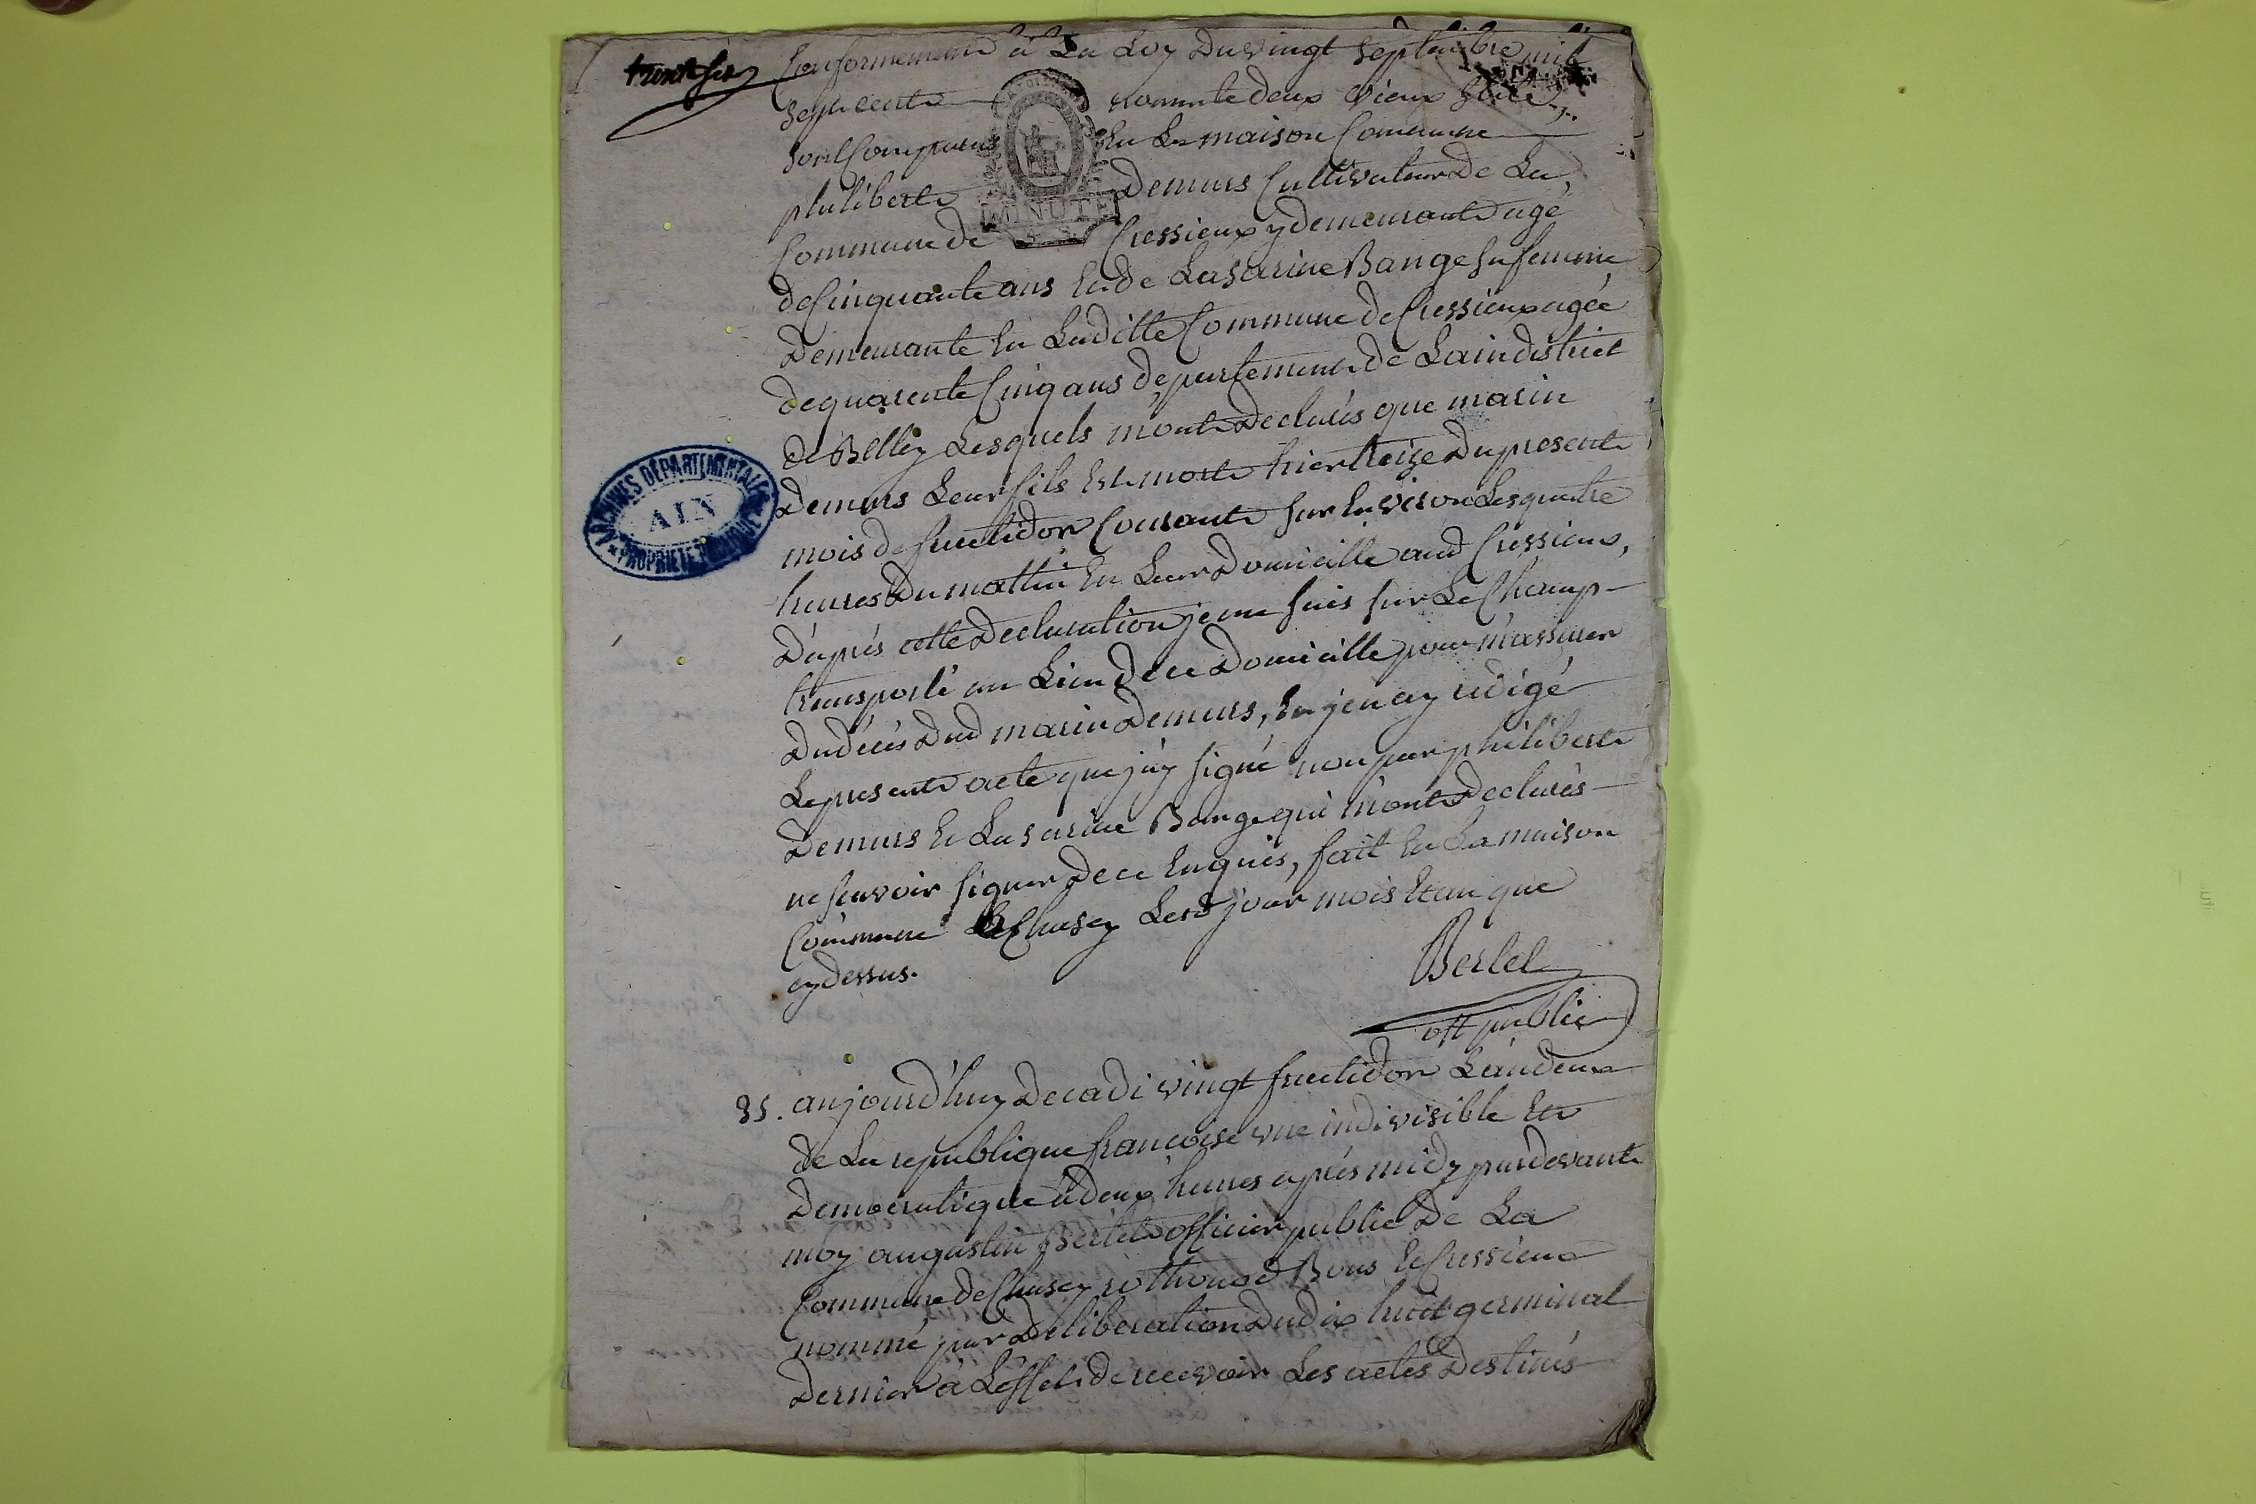 trente six
Conformement à La Loy Du vingt septembre mil
sept cent nonnte deux vieux stile,
sont Comparus En La maison Commune
philibert Demurs Cultivateur De La
Commune de Cressieux y demeurant agé
de Cinquante ans Et de Lasarine Bange sa femme
Demeurante En Laditte Commune de Cressieux agée
de quarente Cinq ans département de Lain district
de Belley Lesquels m'ont Declarés que marin
Demurs Leur fils Est mort hier treize Du present
mois de fructidor Courant sur Environ Les quatre
heures Du mattin En Leur Domicille aud Cressieux,
D'après cette Declaration je me suis sur Le Champ
transporté au Lieu De ce Domicille pour m'assurer
Du décés Dud marin Demurs, Et j'en ay rédigé
Le present acte que j'ay signé non par philibert
Demurs Et Lasarine Bange qui m'ont Declarés
ne scavoir signer De ce Enquis, fait En La maison
Commune De Chasey Lesd jour mois Et an que
cy dessus.
Bertet
off public
35. aujourd'huy Decadi vingt fructidor L'an deux
de La republique francoise une indivisible Et
Democratique à deux heures après midy pardevant
moy augustin Bertet officier public De La
Commune de Chasey rothonod Bons Et Cressieux
nommé par Deliberation Du dix huit germinal
Dernier à L'effet de recevoir Les actes Destinés
MINUTE
ARCHIVES DÉPARTEMENTALES
AIN
PROPRIÉTÉ PUBLIQUE